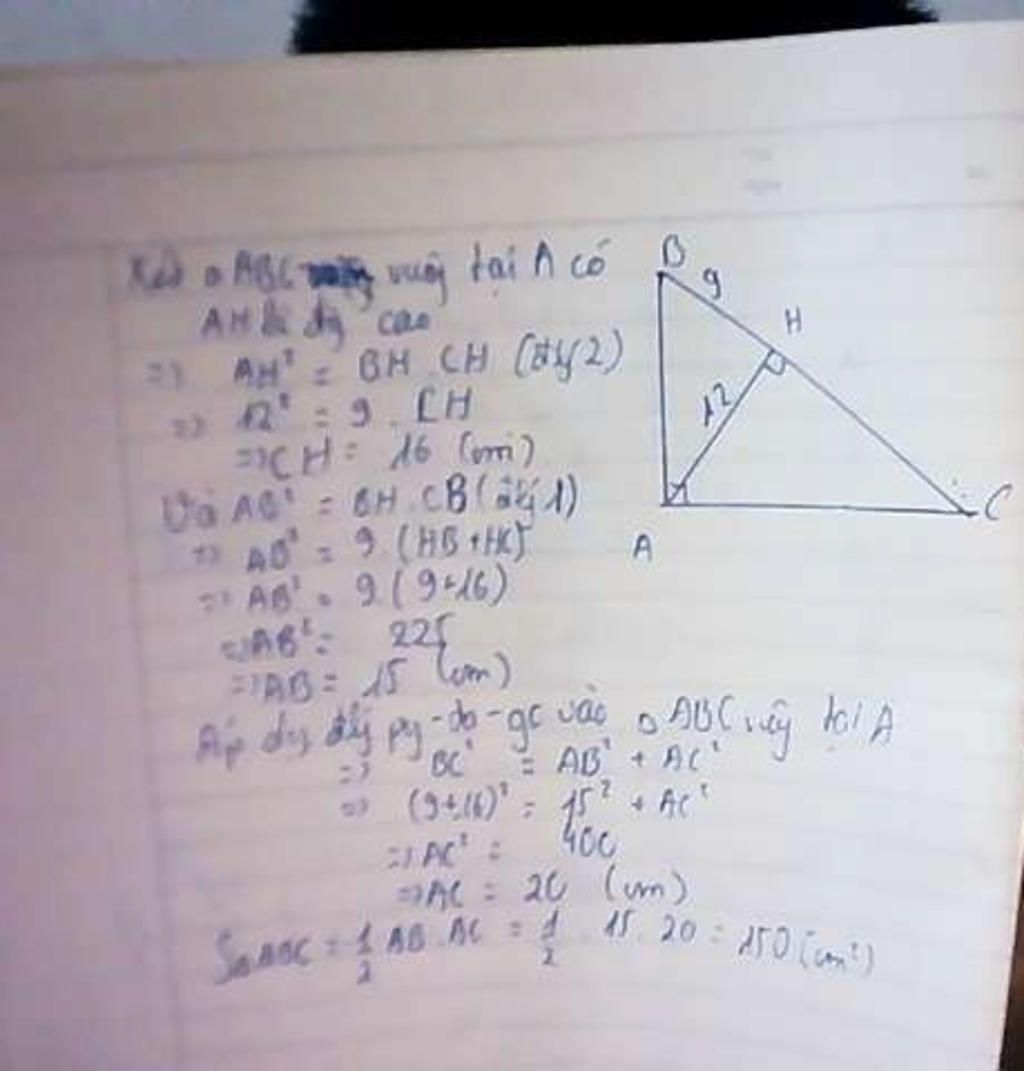 Xét △ ABC vuôg tại A có
AH là đg cao
=> AH² = BH . CH (đlý 2)
=> 12² = 9 . CH
=> CH = 16 (cm)
Và AB² = BH . CB (đlý 1)
=> AB² = 9 (HB + HC)
=> AB² = 9 (9+16)
=> AB² = 225
=> AB = 15 (cm)
Áp dg đlý py-ta-go vào △ ABC vuôg tại A
=> BC² = AB² + AC²
=> (9+16)² = 15² + AC²
=> AC² = 400
=> AC = 20 (cm)
S△ABC = 1/2 AB . AC = 1/2 . 15 . 20 = 150 (cm²)
B
9
H
12
A
C